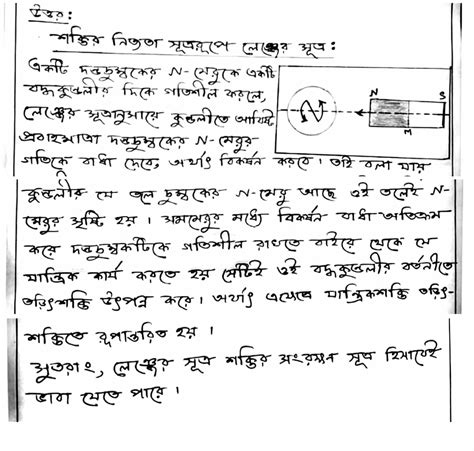 উত্তর:
শক্তির নিত্যতা সূত্ররূপে লেঞ্জের সূত্র:
একটি দণ্ডচুম্বকের N-মেরুকে একটি
বদ্ধকুণ্ডলীর দিকে গতিশীল করলে,
লেঞ্জের সূত্রানুসারে কুণ্ডলীতে আবিষ্ট
প্রবাহমাত্রা দণ্ডচুম্বকের N-মেরুর
গতিকে বাধা দেবে, অর্থাৎ বিকর্ষন করবে। তাই বলা যায়
N S
M
কুণ্ডলীর যে তল চুম্বকের N-মেরু আছে ওই তলেই N-
মেরুর সৃষ্টি হয়। সমমেরুর মধ্যে বিকর্ষন বাধা অতিক্রম
করে দণ্ডচুম্বকটিকে গতিশীল রাখতে বাইরে থেকে যে
যান্ত্রিক কার্য করতে হয় সেটিই ওই বদ্ধকুণ্ডলীর বর্তনীতে
তড়িৎশক্তি উৎপন্ন করে। অর্থাৎ এক্ষেত্রে যান্ত্রিকশক্তি তড়িৎ-
শক্তিতে রূপান্তরিত হয়।
সুতরাং, লেঞ্জের সূত্র শক্তির সংরক্ষন সূত্র হিসাবেই
ভাবা যেতে পারে।